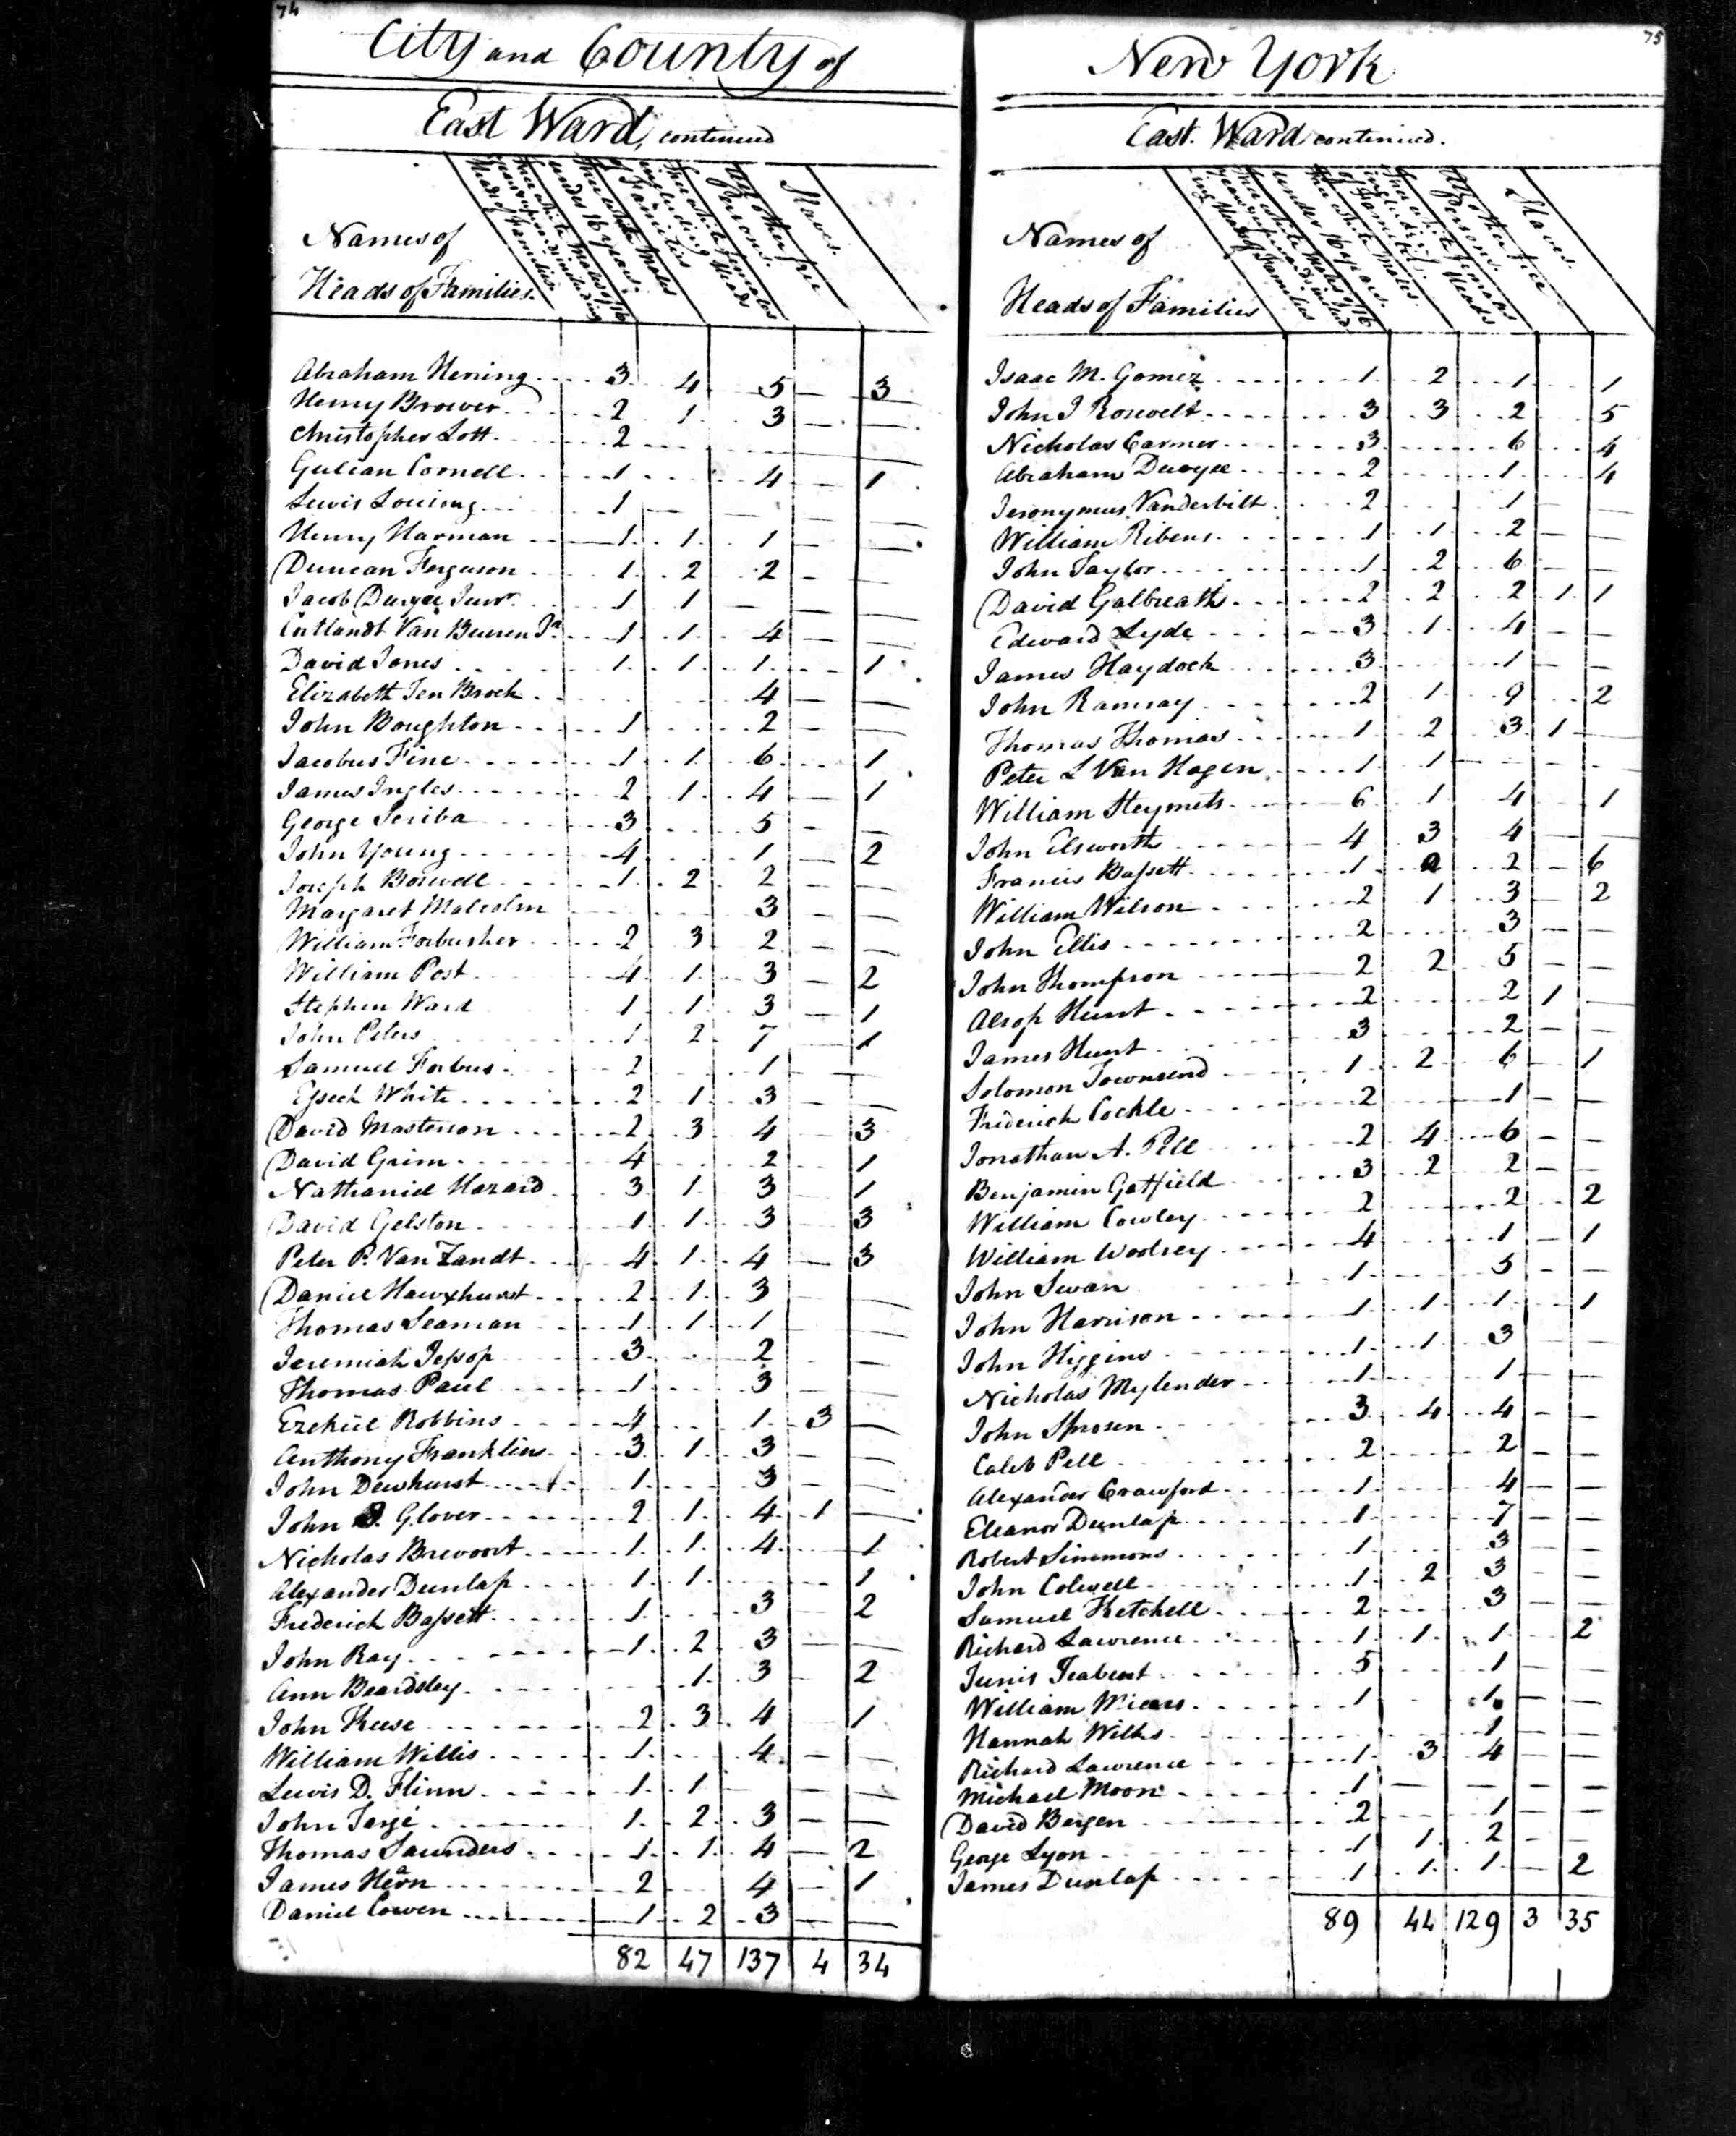 74
City and County of
East Ward, continued
Names of
Heads of Families.
Free white Males of 16 years upward including Heads of Families
Free white Males under 16 years.
Free white Females including Heads of Families
All other free Persons.
Slaves.
Abraham Hening 3 4 5 — 3
Henry Brower 2 1 3 — —
Christopher Lott 2
Gulian Cornell 1 4 — 1
Lewis 1 — — — —
Henry Harman 1 1 1 — —
Duncan Ferguson 1 2 2 — —
Jacob Duryee Junr. 1 1 — —
Cortlandt Van Beuren Jr. 1 1 4 — —
David Jones 1 1 1 1
Elizabeth Ten Broek 4 — —
John Boughton 1 2 — —
Jacobus Fine 1 1 6 1
James Ingles 2 1 4 — 1
George Scriba 3 5 — —
John Young 4 1 — 2
Joseph Bowdle 1 2 2 — —
Margaret Malcolm 3 — —
William Forbusher 2 3 2 — —
William Post 4 1 3 — 2
Stephen Ward 1 1 3 — 1
John Peters 1 2 7 — 1
Samuel Forbus 2 1 — —
Esseck White 2 1 3 — —
David Masterson 2 3 4 3
David Grim 4 2 1
Nathaniel Hazard 3 1 3 1
David Gelston 1 1 3 3
Peter P. Van Zandt 4 1 4 — 3
Daniel Hawxhurst 2 1 3 —
Thomas Seaman 1 1 1 —
Jeremiah Jessop 3 2 — —
Thomas Paul 1 3 — —
Ezekiel Robbins 4 1 3 —
Anthony Franklin 3 1 3 — —
John Dewhurst 1 3 — —
John J. Glover 2 1 4 1 —
Nicholas Brevoort 1 1 4 1
Alexander Dunlap 1 1 1
Frederick Bassett 1 3 2
John Ray 1 2 3 — —
Ann Beardsley 1 3 — 2
John Keese 2 3 4 1
William Willis 1 4 — —
Lewis D. Flinn 1 1 — — —
John Targé 1 2 3 — —
Thomas Saunders 1 1 4 — 2
James Hearn 2 4 — 1
Daniel Cowen 1 2 3 — —
82 47 137 4 34
75
New York
East. Ward continued.
Names of
Heads of Families
Free white Males of 16 years upward includ.ing Heads of Families
Free white Males under 16 years.
Free white Females including Heads of Families.
All other free Persons.
Slaves.
Isaac M. Gomez 1 2 1 1
John J Rosevelt 3 3 2 5
Nicholas Carmer 3 6 4
Abraham Duryee 2 1 4
Jeronymus Vanderbilt 2 1 — —
William Ribens 1 1 2 — —
John Taylor 1 2 6 — —
David Galbreath 2 2 2 1 1
Edward Lyde 3 1 4 — —
James Haydock 3 1 — —
John Ramsay 2 1 9 2
Thomas Thomas 1 2 3 1 —
Peter L Van Hagen 1 1 — — —
William Steymets 6 1 4 1
John Elsworth 4 3 4 — —
Francis Bassett 1 2 2 — 6
William Wilson 2 1 3 — 2
John Ellis 2 3 — —
John Thompson 2 2 5 — —
Alsop Hunt 2 2 1 —
James Hunt 3 2 — —
Solomon Townsend 1 2 6 — 1
Frederick Cockle 2 1 — —
Jonathan A. Pell 2 4 6 — —
Benjamin Gatfield 3 2 2 — —
William Cowley 2 2 2
William Woolsey 4 1 — 1
John Swan 1 5 — —
John Harrison 1 1 1 — 1
John Higgins 1 1 3 — —
Nicholas Mylender 1 1 — —
John Sprosen 3 4 4 — —
Caleb Pell 2 2 — —
Alexander Crawford 1 4 — —
Eleanor Dunlap 1 7 — —
Robert Simmons 1 3 — —
John Colwell 1 2 3 — —
Samuel Ketchell 2 3 — —
Richard Lawrence 1 1 1 2
Tunis Teabout 5 1 — —
William 1 1 — —
Hannah Wilks 1 — —
Richard Lawrence 1 3 4 — —
Michael Moon 1 — — — —
David Bergen 2 1 — —
George Lyon 1 1 2 — —
James Dunlap 1 1 1 — 2
89 44 129 3 35